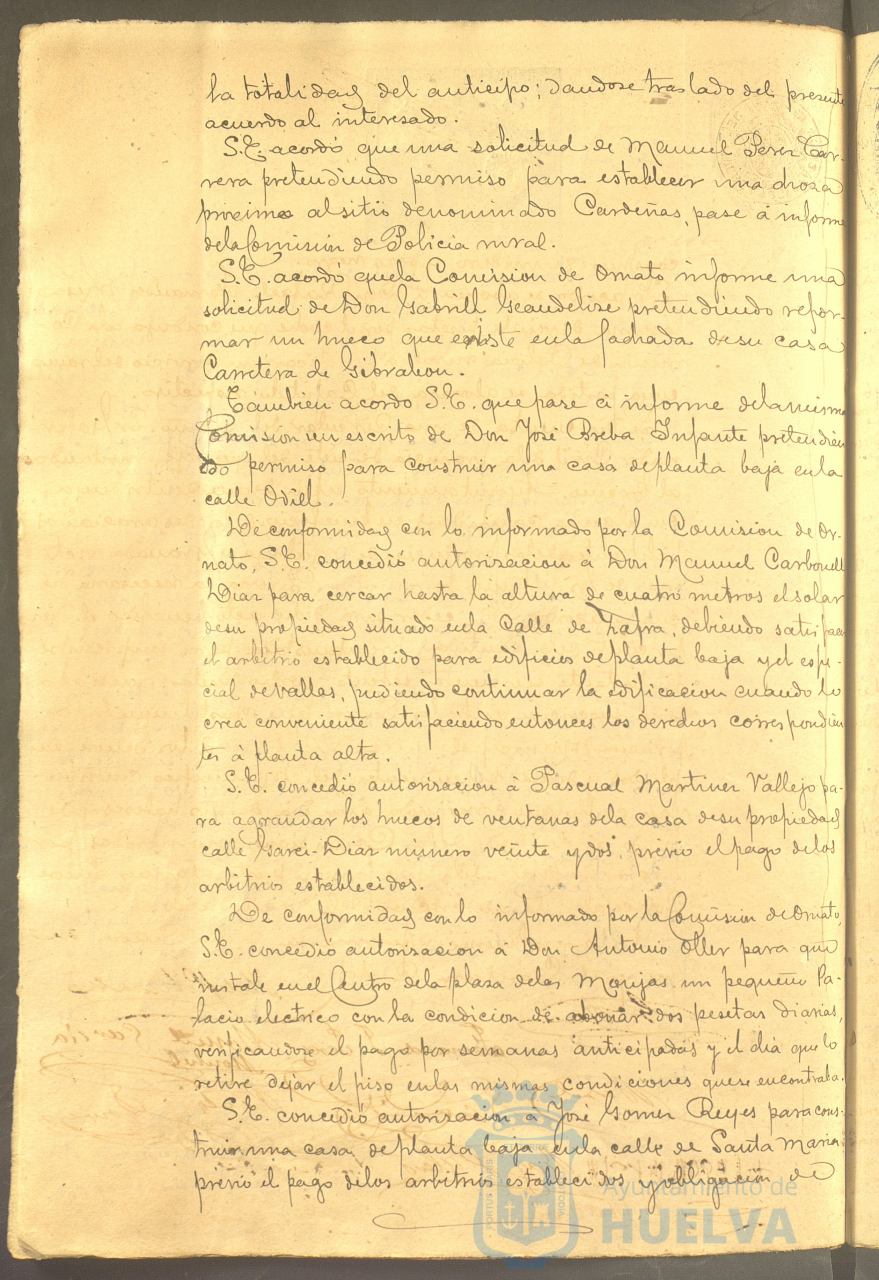 la totalidad del anticipo; dandose traslado del presente
acuerdo al interesado.
S.E. acordó que una solicitud de Manuel Perez Car-
rera pretendiendo permiso para establecer una choza
proximo al sitio denominado Cardeñas, pase á informe
dela Comision de Policia rural.
S.E. acordó quela Comision de Ornato informe una
solicitud de Don Gabriel pretendiendo refor-
mar un hueco que existe enla fachada desu casa
Carretera de Gibraleon.
Támbien acordo S.E. quepase á informe delamisma
Comision un escrito de Don José Breba Infante pretendien
do permiso para construir una casa deplanta baja enla
calle Odiel.
De conformidad con lo informado por la Comision de Or-
nato, S.E. concedió autorizacion á Don Manuel Carbonell
Diaz para cercar hasta la altura de cuatro metros el solar
desu propiedad situado enla Calle de Zafra, debiendo satisfacer
el arbitrio establecido para edificios deplanta baja y el espe-
cial de vallas, pudiendo continuar la edificacion cuando lo
crea conveniente satisfaciendo entonces los derechos correspondien
tes á planta alta.
S.E. concedió autorizacion á Pascual Martinez Vallejo pa-
ra agrandar los huecos de ventanas dela casa desu propiedad
calle Garci-Diaz número veinte y dos, previo el pago delos
arbitrios establecidos.
De conformidad con lo informado por la Comision de Ornato,
S.E. concedió autorizacion á Don Antonio Oller para que
instale en el Centro dela plaza delas Monjas un pequeño Pa-
lacio electrico con la condicion de abonar dos pesetas diarias,
verificandose el pago por semanas anticipadas y el dia que lo
retire dejar el piso enlas mismas condiciones quese encontraba.
S.E. concedió autorizacion á José Gomez Reyes para cons-
truir una casa de planta baja enla calle de Santa Maria,
previo el pago delos arbitrios establecidos y obligacion de
Ayuntamiento de
HUELVA